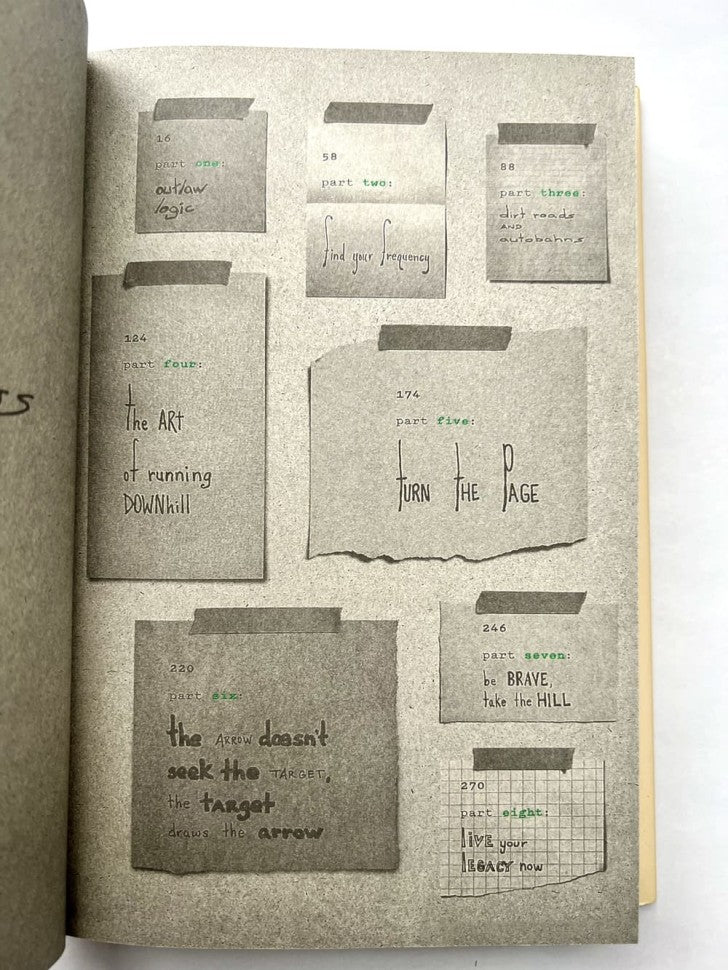 16
part one:
outlaw
logic
58
part two:
find your frequency
88
part three:
dirt roads
AND
autobahns
124
part four:
the ART
of running
DOWNhill
174
part five:
TURN THE PAGE
220
part six:
the ARROW doesn't
seek the TARGET,
the TARget
draws the arrow
246
part seven:
be BRAVE,
take the HILL
270
part eight:
liVE your
lEGACY now